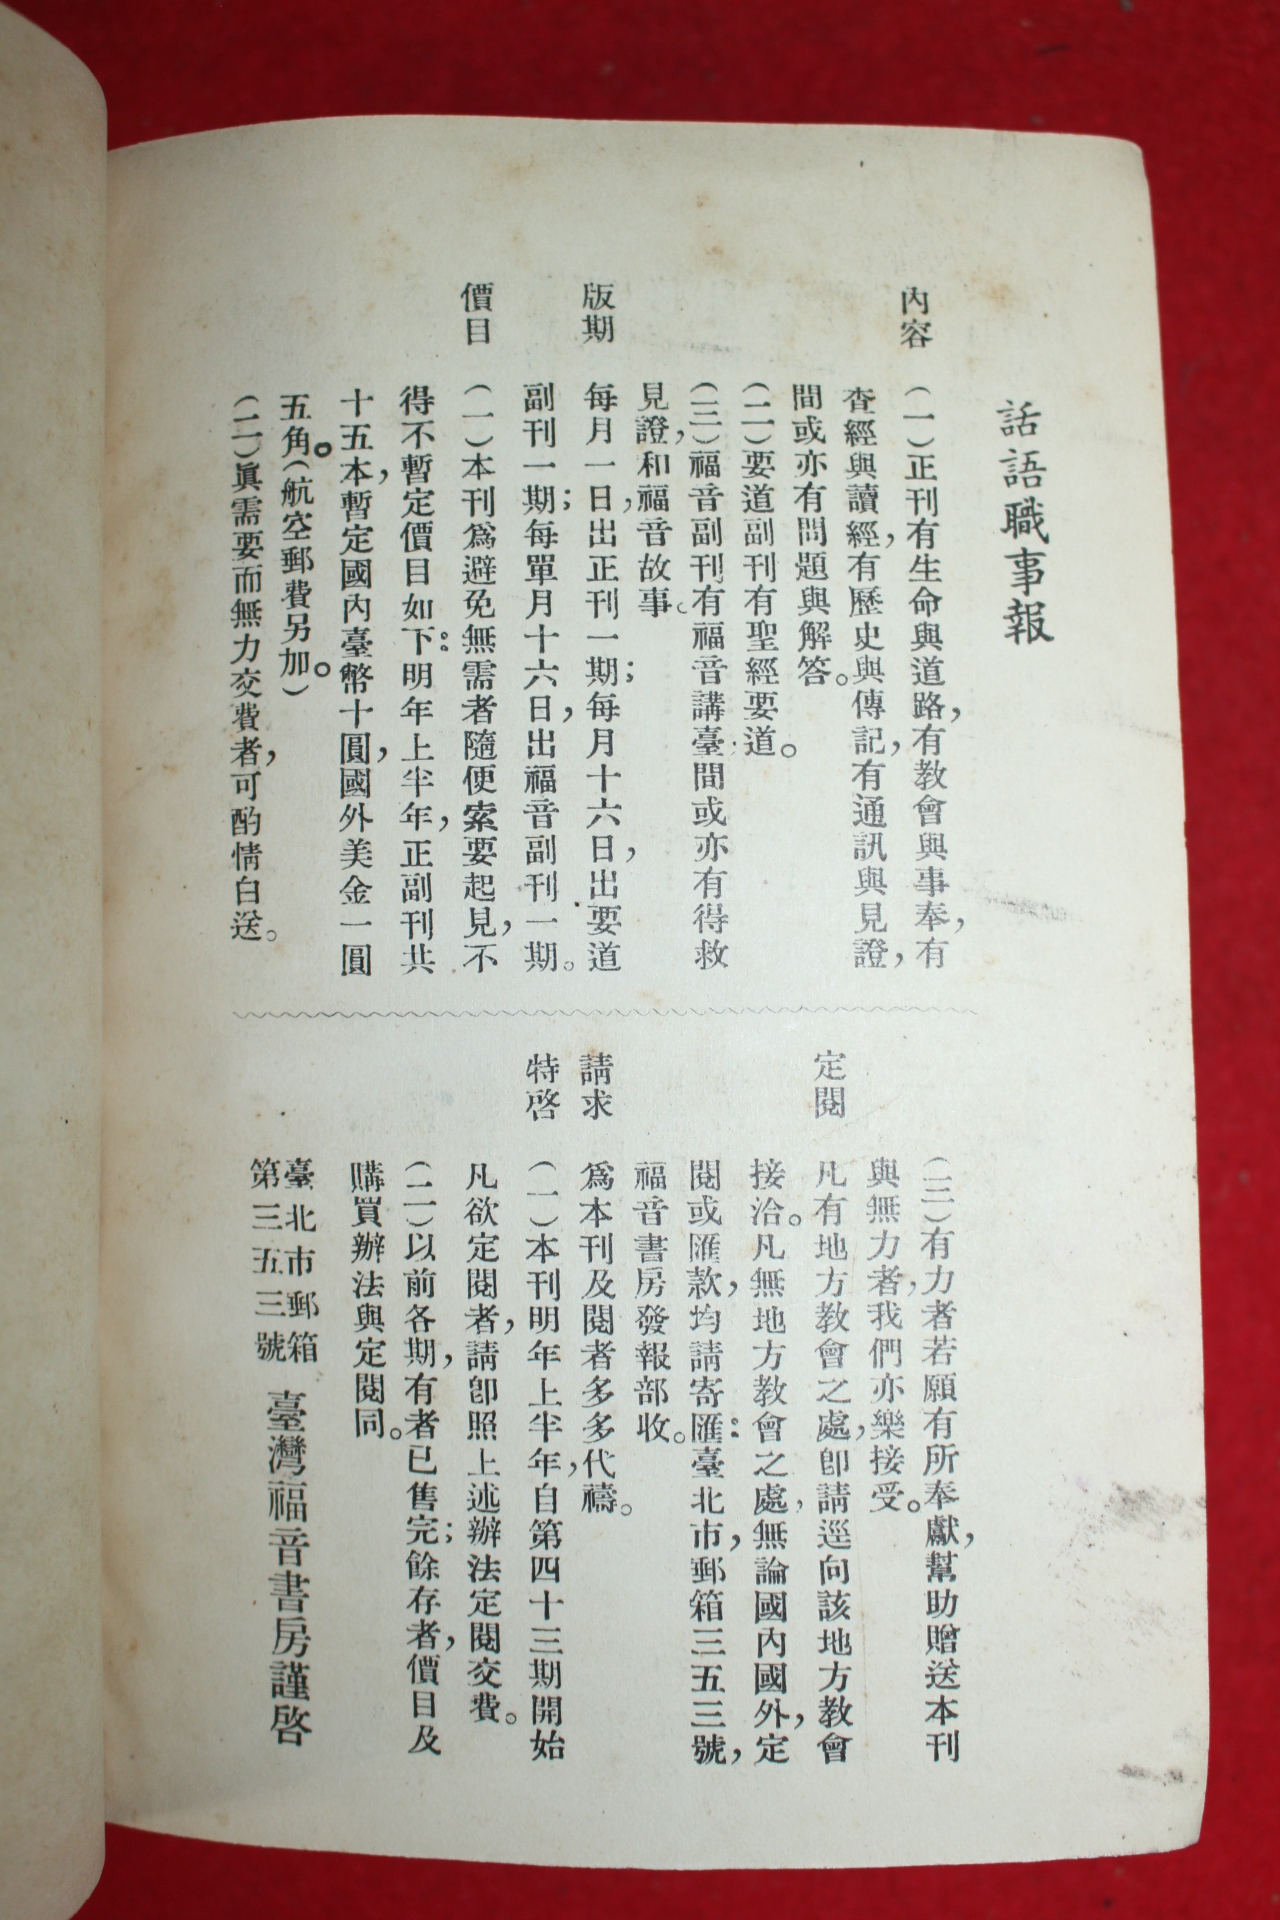 話語職事報
內容
(一)正刊有生命與道路,有教會與事奉,有
查經與讀經,有歷史與傳記,有通訊與見證,
間或亦有問題與解答。
(二)要道副刊有聖經要道。
(三)福音副刊有福音講臺,間或亦有得救
見證,和福音故事。
版期
每月一日,出正刊一期;每月十六日,出要道
副刊一期;每單月十六日,出福音副刊一期。
價目
(一)本刊爲避免無需者隨便索要起見,不
得不暫定價目如下:明年上半年,正副刊共
十五本,暫定國內臺幣十圓,國外美金一圓
五角。(航空郵費另加。)
(二)眞需要而無力交費者,可酌情白送。
(三)有力者若願有所奉獻,幫助贈送本刊
與無力者,我們亦樂接受。
定閱
凡有地方教會之處,卽請逕向該地方教會
接洽。凡無地方教會之處,無論國內國外,定
閱或匯款,均請寄匯:臺北市,郵箱三五三號,
福音書房發報部收。
請求
爲本刊及閱者多多代禱。
特啓
(一)本刊明年上半年,自第四十三期開始
凡欲定閱者,請卽照上述辦法定閱交費。
(二)以前各期,有者已售完;餘存者,價目及
購買辦法與定閱同。
臺北市郵箱
第三五三號
臺灣福音書房謹啓